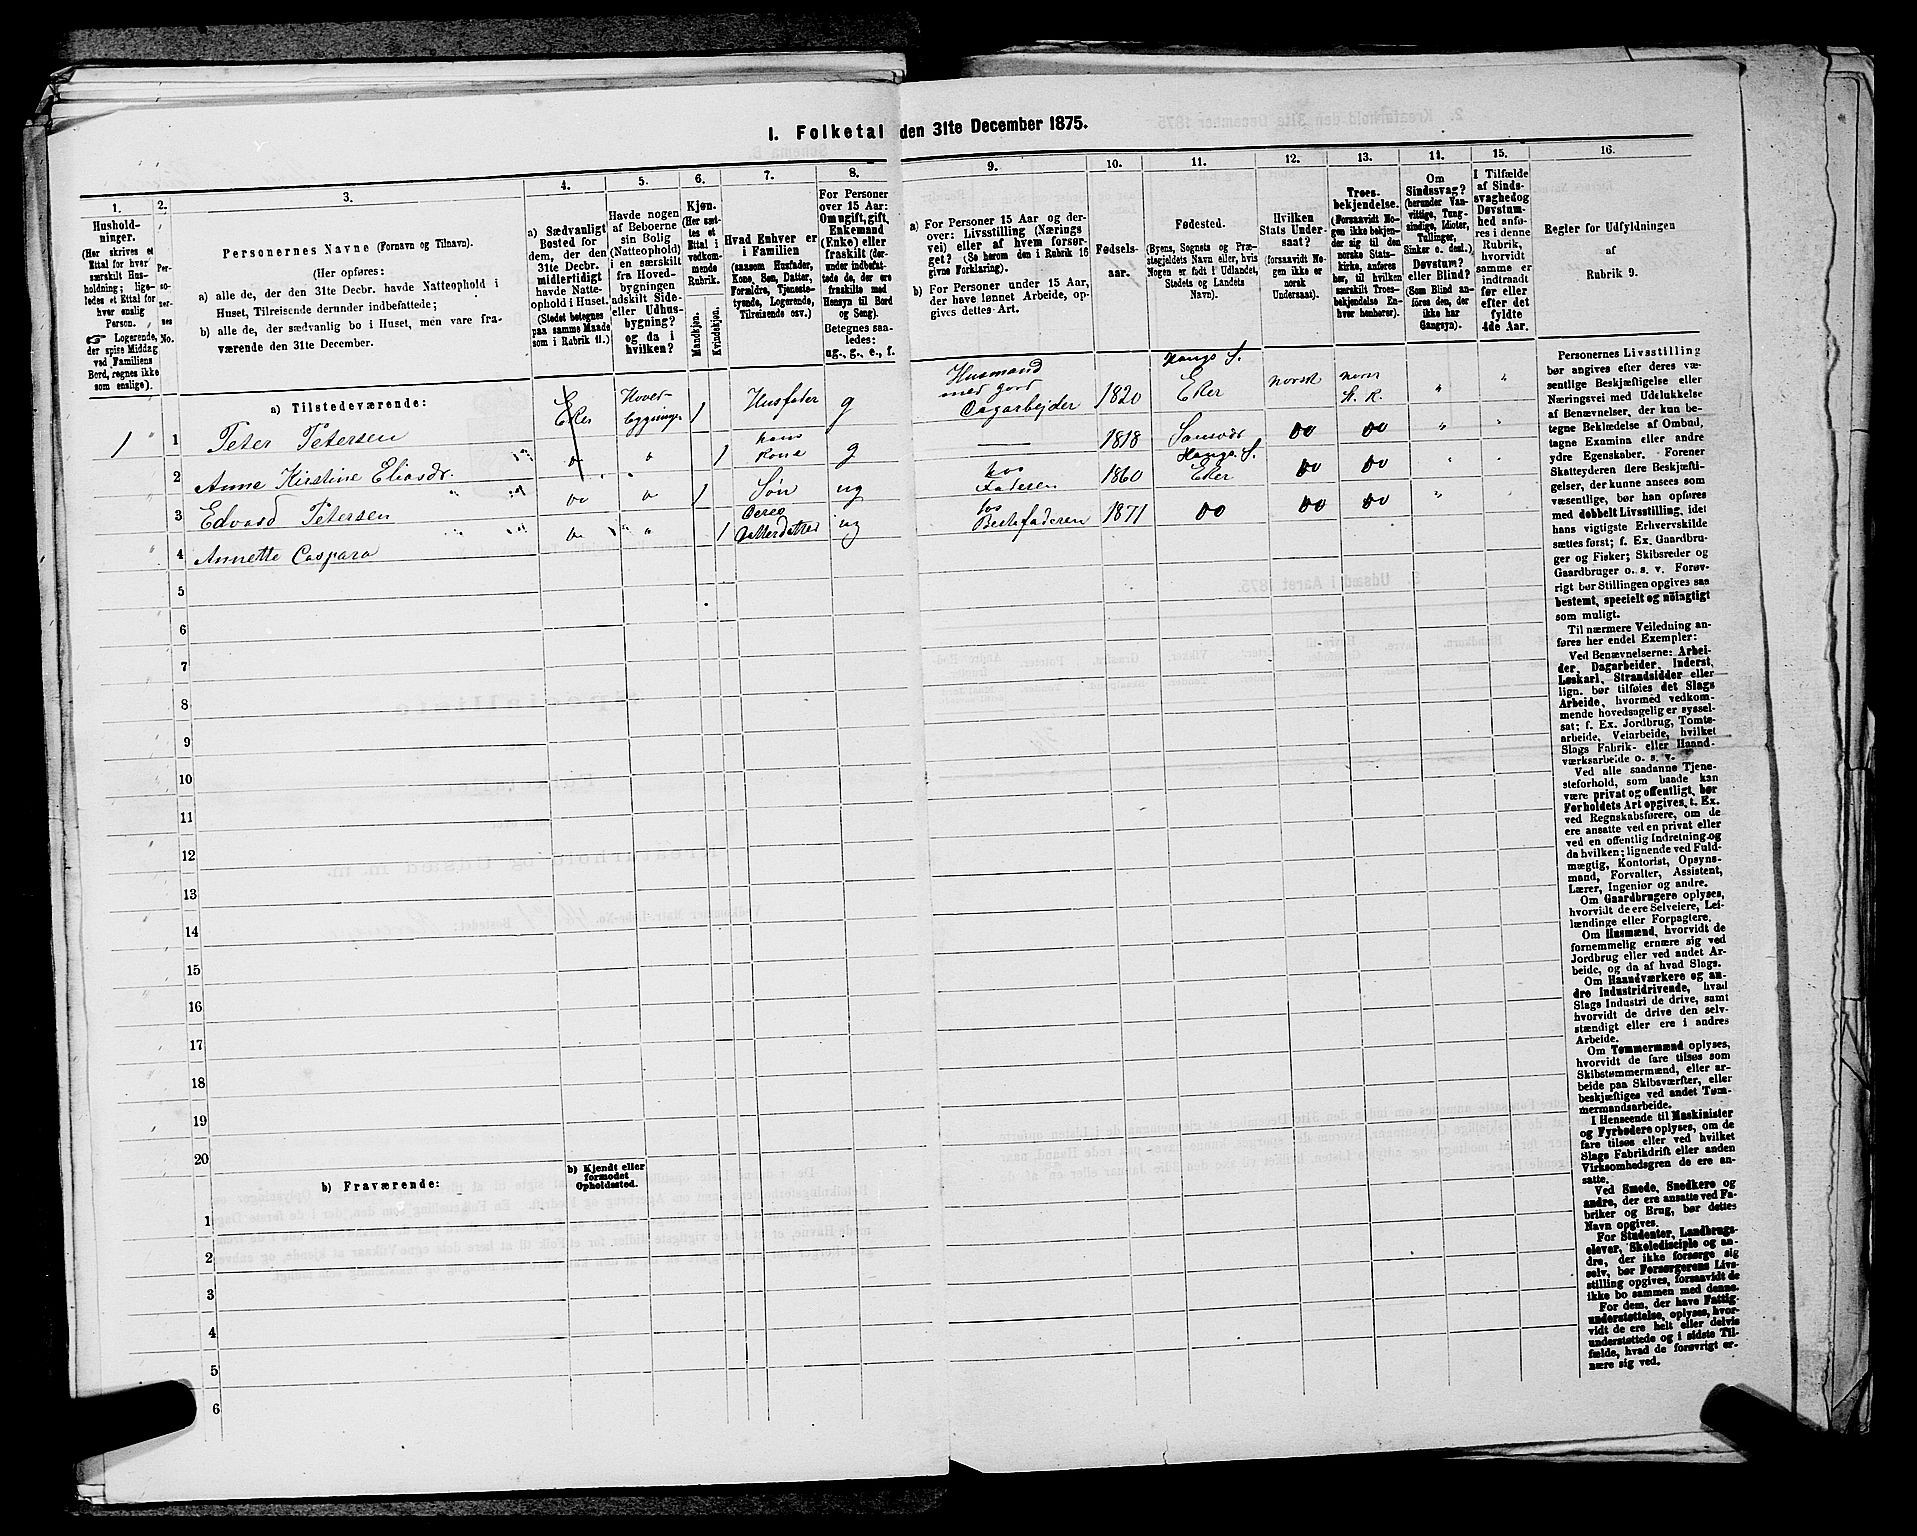 I. Folketal den 31te December 1875.
1. 2. 3. 4. 5. 6. 7. 8. 9. 10. 11. 12. 13. 14. 15. 16.
Hushold-
ninger.
(Her skrives et
Ettal for hver
særskilt Hus-
holdning; lige-
ledes et Ettal for
hver enslig
Person.
☞ Logerende,
der spise Middag
ved Familiens
Bord, regnes ikke
som enslige).
Per-
so-
ner-
nes
No.
Personernes Navne (Fornavn og Tilnavn).
(Her opføres:
a) alle de, der den 31te Decbr. havde Natteophold i
Huset, Tilreisende derunder indbefattede;
b) alle de, der sædvanlig bo i Huset, men vare fra-
værende den 31te December.
a) Sædvanligt
Bosted for
dem, der den
31te Decbr.
midlertidigt
havde Natte-
ophold i Huset.
(Stedet betegnes
paa samme Maade
som i Rubrik 11.)
Havde nogen
af Beboerne
sin Bolig
(Natteophold)
i en særskilt
fra Hoved-
bygningen
adskilt Side-
eller Udhus-
bygning?
og da i
hvilken?
Kjøn.
(Her sæt-
tes et
Ettal i
vedkom-
mende
Rubrik.
Mandkjøn.
Kvindekjøn.
Hvad Enhver er
i Familien
(saasom Husfader,
Kone, Søn, Datter,
Forældre, Tjeneste-
tyende, Logerende,
Tilreisende osv.)
For Personer
over 15 Aar:
Om ugift, gift,
Enkemand
(Enke) eller
fraskilt (der-
under indbefat-
tede de, der ere
fraskilte med
Hensyn til Bord
og Seng).
Betegnes saa-
ledes:
ug., g., e., f.
a) For Personer 15 Aar og der-
over: Livsstilling (Nærings
vei) eller af hvem forsør-
get? (Se herom den i Rubrik 16
givne Forklaring).
b) For Personer under 15 Aar,
der have lønnet Arbeide, op-
gives dettes Art.
Fødsels-
aar.
Fødested.
(Byens, Sognets og Præ-
stegjeldets Navn eller, hvis
Nogen er født i Udlandet,
Stedets og Landets
Navn).
Hvilken
Stats Under-
saat?
(forsaavidt No-
gen ikke er
norsk
Undersaat).
Troes-
bekjendelse.
(Forsaavidt No-
gen ikke bekjen-
der sig til den
norske Stats-
kirke, anføres
her, til hvilken
særskilt Troes-
bekjendelse En-
hver henhører).
Om
Sindssvag?
(herunder Van-
vittige, Tung-
sindige, Idioter,
Tullinger,
Sinker o. desl.)
Døvstum?
eller Blind?
(Som Blind an-
føres den, der
ikke har
Gangsyn).
I Tilfælde
af Sinds-
svaghed og
Døvstum-
hed anfø-
res i denne
Rubrik,
hvorvidt
samme er
indtraadt
før eller
efter det
fyldte
4de Aar.
Regler for Udfyldningen
af
Rubrik 9.
a) Tilstedeværende:
1 1 Peter Petersen Eker Hoved- bygning 1 Husfader g Husmand med jord Dagarbejder 1820 Haugs S. Eker norsk norsk St. K. " "
2 Anne Kirstine Eliasdr. do " 1 hans Kone g — 1818 do do " "
3 Edvard Petersen do do 1 Søn ug hos Faderen 1860 Haugs S. Eker do do " "
4 Annette Caspara do " 1 Deres Datterdatter ug hos Bestefaderen 1871 do do do " "
5
6
7
8
9
10
11
12
13
14
15
16
17
18
19
20
b) Fraværende:
b) Kjendt eller
formodet
Opholdssted.
1
2
3
4
5
6
Personernes Livsstilling
bør angives efter deres væ-
sentlige Beskjæftigelse eller
Næringsvei med Udelukkelse
af Benævnelser, der kun be-
tegne Beklædelse af Ombud,
tagne Examina eller andre
ydre Egenskaber. Forener
Skatteyderen flere Beskjæfti-
gelser, der kunne ansees som
væsentlige, bør han opføres
med dobbelt Livsstilling, idet
hans vigtigste Erhvervskilde
sættes først; f. Ex. Gaardbru-
ger og Fisker; Skibsreder og
Gaardbruger o. s. v. Forøv-
rigt bør Stillingen opgives saa
bestemt, specielt og nøiagtigt
som muligt.
Til nærmere Veiledning an-
føres her endel Exempler:
Ved Benævnelserne: Arbei-
der, Dagarbeider, Inderst,
Løskarl, Strandsidder eller
lign. bør tilføies det Slags
Arbeide, hvormed vedkom-
mende hovedsagelig er syssel-
sat; f. Ex. Jordbrug, Tomte-
arbeide, Veiarbeide, hvilket
Slags Fabrik- eller Haand-
værksarbeide o. s. v.
Ved alle saadanne Tjene-
steforhold, som baade kan
være privat og offentligt, bør
Forholdets Art opgives, t. Ex.
ved Regnskabsførere, om de
ere ansatte ved en privat eller
ved en offentlig Indretning og
da hvilken; lignende ved Fuld-
mægtig, Kontorist, Opsyns-
mand, Forvalter, Assistent,
Lærer, Ingeniør og andre.
Om Gaardbrugere oplyses,
hvorvidt de ere Selveiere, Lei-
lændinge eller Forpagtere.
Om Husmænd, hvorvidt de
fornemmelig ernære sig ved
Jordbrug eller ved andet Ar-
beide, og da af hvad Slags.
Om Haandværkere og an-
dre Industridrivende, hvad
Slags Industri de drive, samt
hvorvidt de drive den selv-
stændigt eller ere i andres
Arbeide.
Om Tømmermænd oplyses,
hvorvidt de fare tilsøs som
Skibstømmermænd, eller ar-
beide paa Skibsværfter, eller
beskjæftiges ved andet Tøm-
mermandsarbeide.
I Henseende til Maskinister
og Fyrbødere oplyses, om de
fare tilsøs eller ved hvilket
Slags Fabrikdrift eller anden
Virksomhedsgren de ere an-
satte.
Ved Smede, Snedkere og
andre, der ere ansatte ved Fa-
briker og Brug, bør dettes
Navn opgives.
For Studenter, Landbrugs-
elever, Skoledisciple og an-
dre, der ikke forsørge sig
selv, bør Forsørgerens Livs-
stilling opgives, forsaavidt de
ikke bo sammen med denne.
For dem, der have Fattig-
understøttelse, oplyses, hvor-
vidt de ere helt eller delvis
understøttede og i sidste Til-
fælde, hvad de forøvrigt er-
nære sig ved.